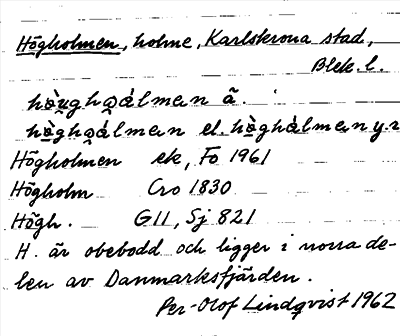 Högholmen, holme, Karlskrona stad,
Blek. l.
hò̤u̯gho̯álmen ã.
hò̤gho̯álmen el. hò̤ghálmen y.r
Högholmen ek, Fo 1961
Högholm Cro 1830
Högh. G11, Sj 821
H. är obebodd och ligger i norra de-
len av Danmarksfjärden.
Per-Olof Lindqvist 1962